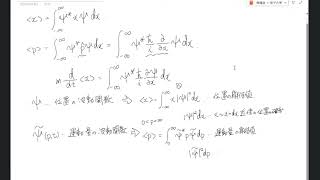 <x> = ∫_{-∞}^{∞} ψ* x ψ dx
<p> = ∫_{-∞}^{∞} ψ* p̂ ψ dx = ∫_{-∞}^{∞} ψ* ħ/i ∂/∂x ψ dx
m d/dt <x> = ∫_{-∞}^{∞} ψ* ħ/i ∂ψ/∂x dx
ψ … 位置の波動関数 ⇒ <x> = ∫_{-∞}^{∞} x|ψ|² dx … 位置の期待値
|ψ|² dx … x
ψ̃(p,t) … 運動量の波動関数 ⇒ <p> = ∫ ψ̃* p ψ̃ dp … 運動量の期待値
|ψ̃|² dp